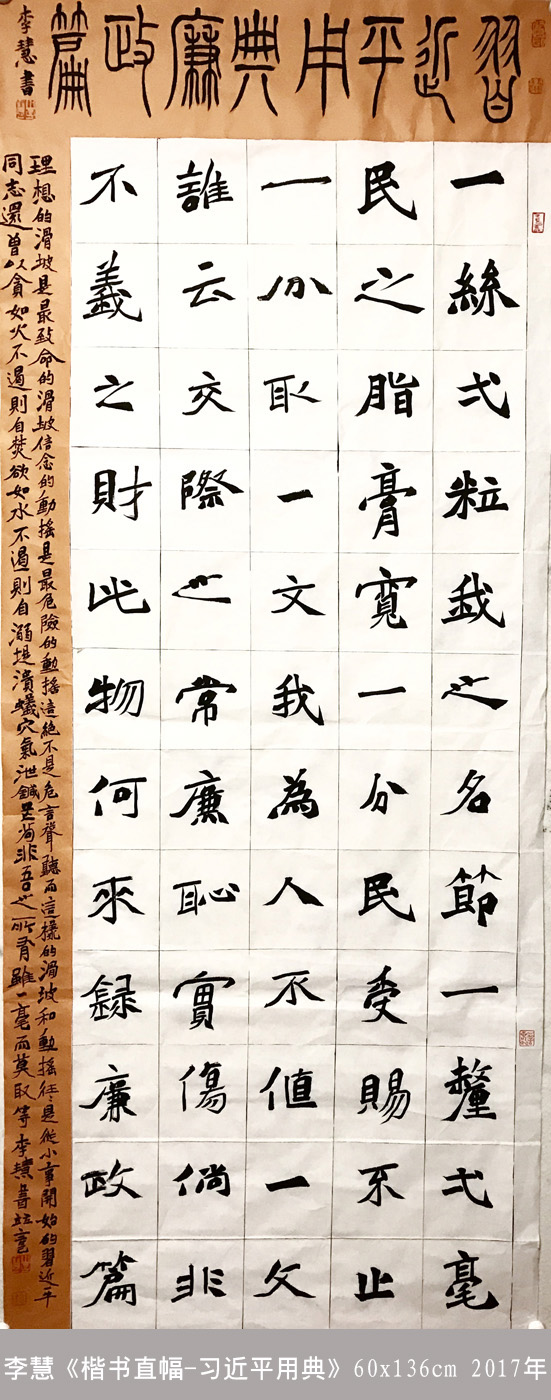 習近平用典廉政篇
李慧書
一絲弌粒我之名節一釐弌毫
民之脂膏寬一分民受賜不止
一分取一文我為人不值一文
誰云交際之常廉恥實傷倘非
不義之財此物何來録廉政篇
理想的滑坡是最致命的滑坡信念的動搖是最危險的動搖這絕不是危言聳聽而這樣的滑坡和動搖往〻是從小事開始的習近平
同志還曾以貪如火不遏則自焚欲如水不遏則自溺堤潰蟻穴氣泄鍼芒苟非吾之所有雖一毫而莫取等李慧書並言
李慧《楷书直幅-习近平用典》60x136cm 2017年